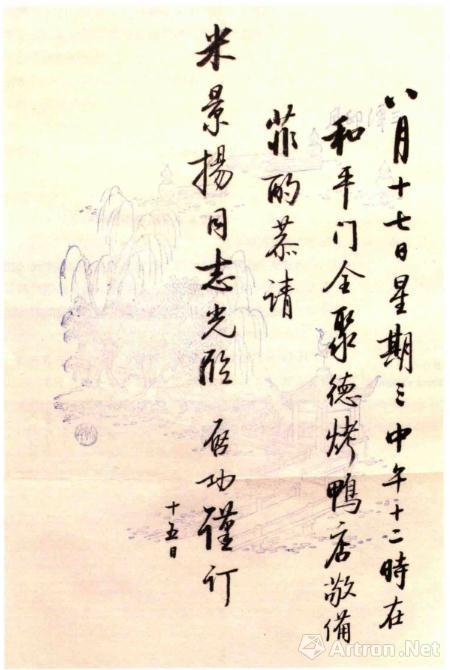 八月十七日星期三中午十二時在
和平门全聚德烤鴨店敬備
菲酌恭请
米景揚同志光临 启功谨订
十五日
Artron.Net